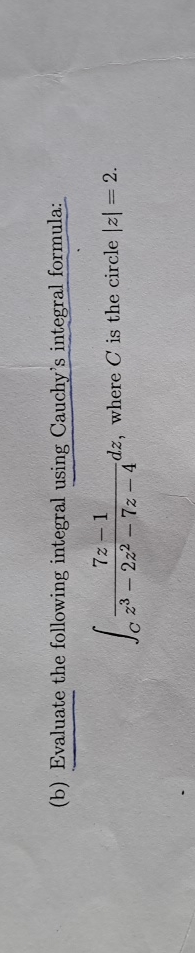 (b) Evaluate the following integral using Cauchy's integral formula:
∫_C (7z − 1)/(z³ − 2z² − 7z − 4) dz, where C is the circle |z| = 2.